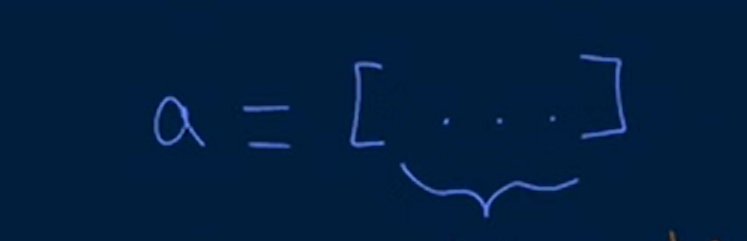 a = [ . . . ]